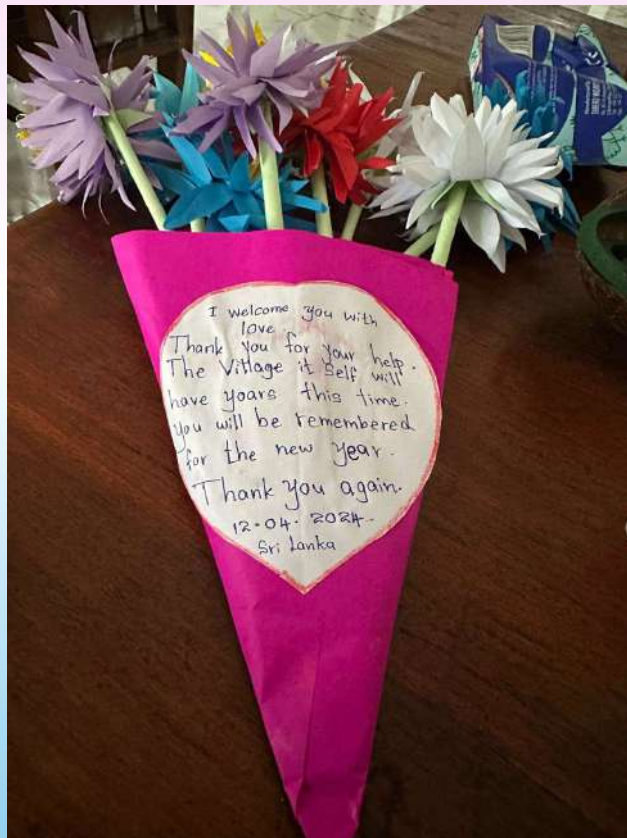 I welcome you with
love.
Thank you for your help.
The Village it Self will
have yoars this time.
you will be remembered
for the new year.
Thank you again.
12.04.2024
Sri Lanka